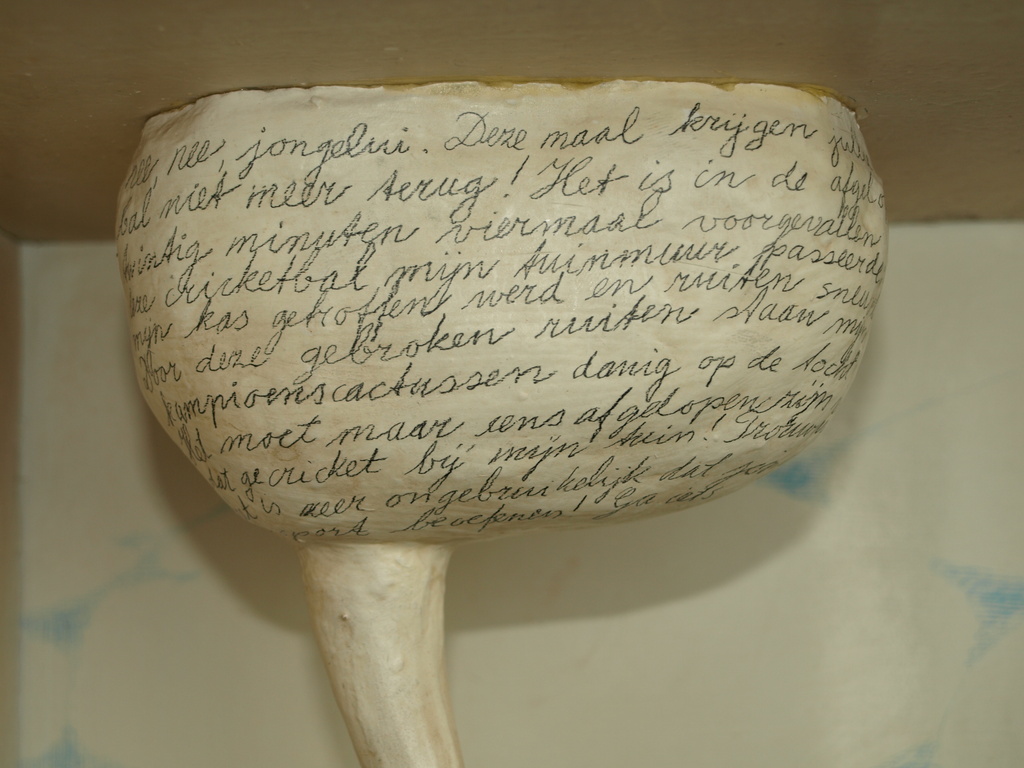 nee, nee, jongelui. Deze maal krijgen
bal niet meer terug! Het is in de afgelo
twintig minuten viermaal voorgevallen
cricketbal mijn tuinmuur passeerde
mijn kas getroffen werd en ruiten sneu
Door deze gebroken ruiten staan mijn
kampioenscactussen danig op de tocht
moet maar eens afgelopen zijn
gecricket bij mijn tuin! Trouwen
t is zeer ongebruikelijk dat
port beoefenen! Ga